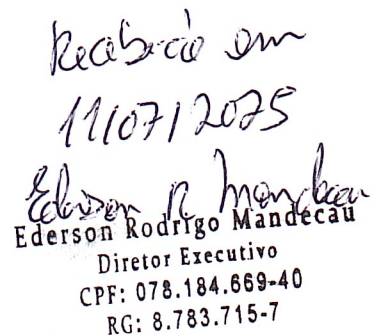 Recebido em
11/07/2025
Ederson R. Mandecau
Ederson Rodrigo Mandecau
Diretor Executivo
CPF: 078.184.669-40
RG: 8.783.715-7